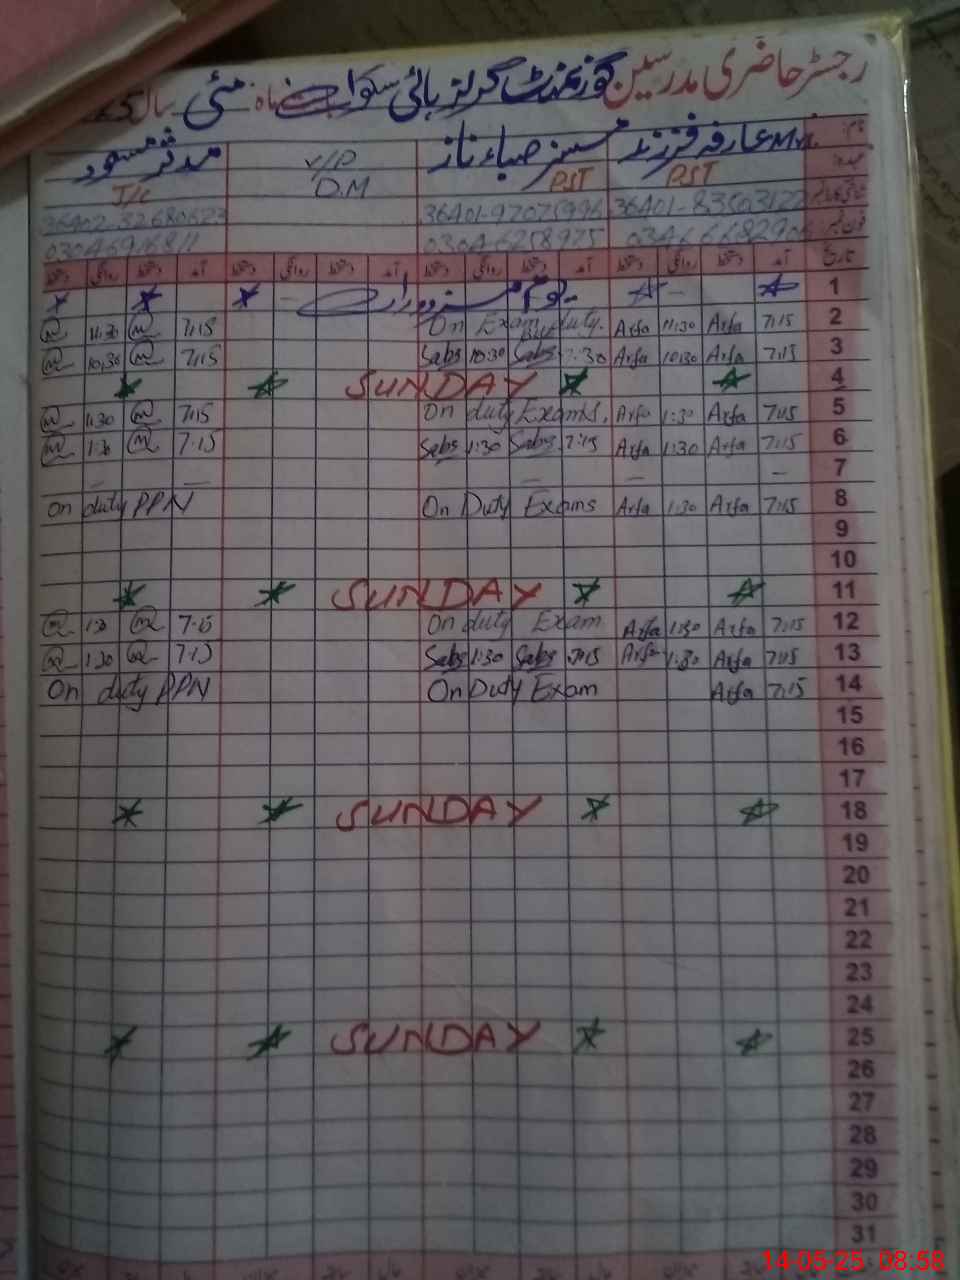 رجسٹر حاضری مدرسین گورنمنٹ گرلز ہائی سکول ماہ مئی سال
Mrs عارفہ فرزند مسز صباء ناز V/P مدثر مسعود
PST PST D.M J/C
36401-97075996
0304-6258975
آمد دستخط روانگی دستخط آمد دستخط روانگی دستخط آمد دستخط روانگی دستخط آمد دستخط روانگی دستخط تاریخ
یوم مزدور 1
11:30 7:15 On Exam duty. Arfa 11:30 Arfa 7:15 2
10:30 7:15 Sabs 10:30 Sabs 7:30 Arfa 10:30 Arfa 7:15 3
SUNDAY 4
1:30 7:15 On duty Exams. Arfa 1:30 Arfa 7:15 5
1:30 7:15 Sabs 1:30 Sabs 7:15 Arfa 1:30 Arfa 7:15 6
7
On duty PPN On Duty Exams Arfa 1:30 Arfa 7:15 8
9
10
SUNDAY 11
1:30 7:15 On duty Exam Arfa 1:30 Arfa 7:15 12
1:30 7:15 Sabs 1:30 Sabs 7:15 Arfa 1:30 Arfa 7:15 13
On duty PPN On Duty Exam Arfa 7:15 14
15
16
17
SUNDAY 18
19
20
21
22
23
24
SUNDAY 25
26
27
28
29
30
31
14-05-25 08:58